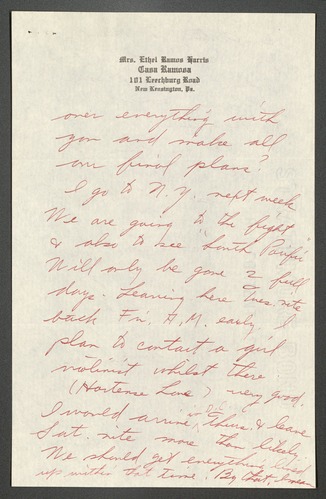 Mrs. Ethel Ramos Harris
Casa Ramosa
101 Leechburg Road
New Kensington, Pa.
over everything with
you and make all
our final plans?
I go to N.Y. next week
We are going to the fight
& also to see "South Pacific"
Will only be gone 2 full
days. Leaving here Tues. nite
back Fri. A.M. early. I
plan to contact a girl
violinist whilst there
(Hortense Love) very good.
I would arrive Thurs & leave
Sat. nite more than likely.
We should get everything lined
up within that time.